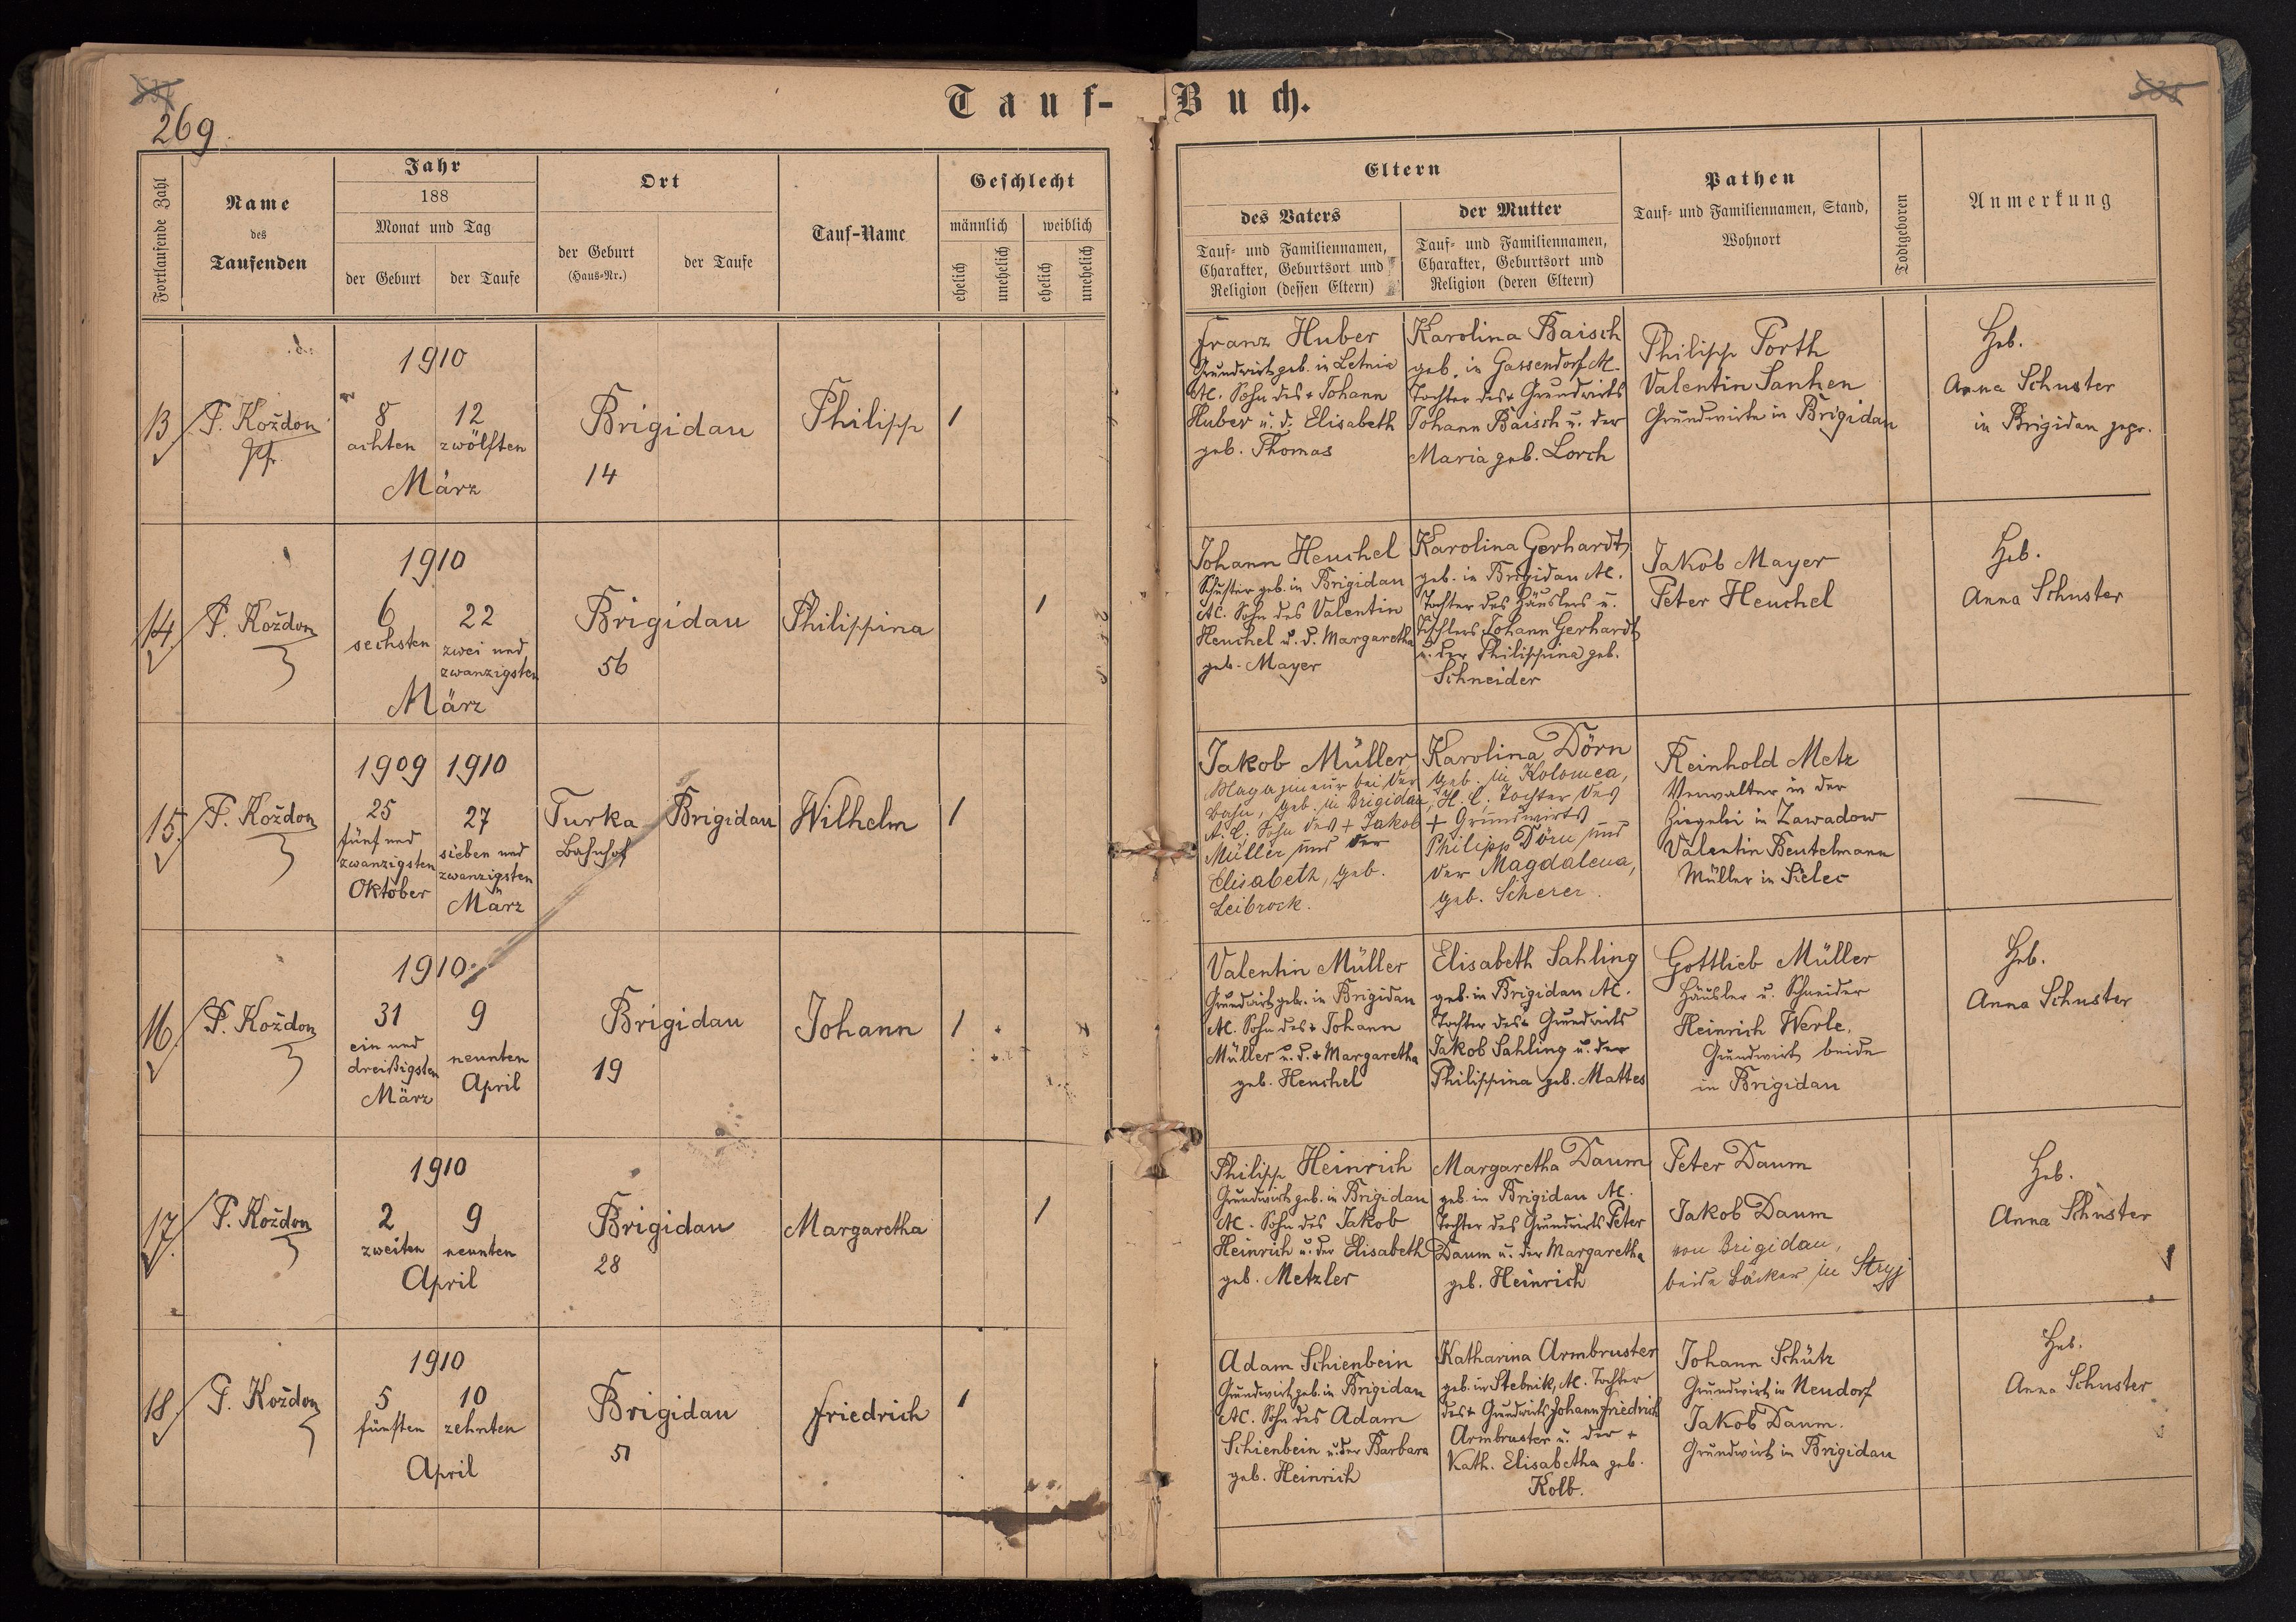 269
Tauf-Buch.
Fortlaufende Zahl
Name
des
Taufenden
Jahr
188
Monat und Tag
der Geburt
der Taufe
Ort
der Geburt
(Haus-Nr.)
der Taufe
Tauf-Name
Geschlecht
männlich
weiblich
ehelich
unehelich
ehelich
unehelich
Eltern
des Vaters
Tauf- und Familiennamen,
Charakter, Geburtsort und
Religion (dessen Eltern)
der Mutter
Tauf- und Familiennamen,
Charakter, Geburtsort und
Religion (deren Eltern)
Pathen
Tauf- und Familiennamen, Stand,
Wohnort
Todtgeboren
Anmerkung
13
P. Koždon
Pfr.
1910
8
achten
12
zwölften
März
Brigidau
14
Philipp
1
Franz Huber
Grundwirt geb. in Letnia
AC. Sohn des + Johann
Huber u. d. Elisabeth
geb. Thomas
Karolina Baisch
geb. in Gassendorf AC.
Tochter des + Grundwirts
Johann Baisch u. der
Maria geb. Lorch
Philipp Porth
Valentin Sanhen
Grundwirte in Brigidau
Heb.
Anna Schuster
in Brigidau gepr.
14.
P. Koždon
1910
6
sechsten
22
zwei und
zwanzigsten
März
Brigidau
56
Philippina
1
Johann Heuchel
Schuster geb. in Brigidau
AC. Sohn des Valentin
Heuchel u. d. Margaretha
geb. Mayer
Karolina Gerhardt
geb. in Brigidau AC.
Tochter des Häuslers u.
Tischlers Johann Gerhardt
u. der Philippina geb.
Schneider
Jakob Mayer
Peter Heuchel
Heb.
Anna Schuster
15.
P. Koždon
1909
1910
25
fünf und
zwanzigsten
Oktober
27
sieben und
zwanzigsten
März
Turka
Bahnhof
Brigidau
Wilhelm
1
Jakob Müller
Magazineur bei der
Bahn, geb. in Brigidau,
A. C. Sohn des + Jakob
Müller und der
Elisabeth, geb.
Leibrock.
Karolina Dörn
geb. in Kolomea,
H. C. Tochter des
+ Grundwirts
Philipp Dörn und
der Magdalena,
geb. Scherer.
Reinhold Metz
Verwalter in der
Ziegelei in Zawadow
Valentin Beutelmann
Müller in Sielec
16.
P. Koždon
1910
31
ein und
dreißigsten
März
9
neunten
April
Brigidau
19
Johann
1
Valentin Müller
Grundwirt geb. in Brigidau
AC. Sohn des + Johann
Müller u. d. + Margaretha
geb. Heuchel
Elisabeth Sahling
geb. in Brigidau AC.
Tochter des + Grundwirts
Jakob Sahling u. der
Philippina geb. Mattes
Gottlieb Müller
Häusler u. Schneider
Heinrich Werle,
Grundwirt beide
in Brigidau
Heb.
Anna Schuster
17.
P. Koždon
1910
2
zweiten
9
neunten
April
Brigidau
28
Margaretha
1
Philipp Heinrich
Grundwirt geb. in Brigidau
AC. Sohn des Jakob
Heinrich u. der Elisabeth
geb. Metzler
Margaretha Daum
geb. in Brigidau AC.
Tochter des Grundwirts Peter
Daum u. der Margaretha
geb. Heinrich
Peter Daum
Jakob Daum
von Brigidau,
beide Bäcker in Stryj
Heb.
Anna Schuster
18.
P. Koždon
1910
5
fünften
10
zehnten
April
Brigidau
51
Friedrich
1
Adam Schienbein
Grundwirt geb. in Brigidau
AC. Sohn des Adam
Schienbein u. der Barbara
geb. Heinrich
Katharina Armbruster
geb. in Stebnik, AC. Tochter
des + Grundwirts Johann Friedrich
Armbruster u. der +
Kath. Elisabetha geb.
Kolb.
Johann Schütz
Grundwirt in Neudorf
Jakob Daum.
Grundwirt in Brigidau
Heb.
Anna Schuster